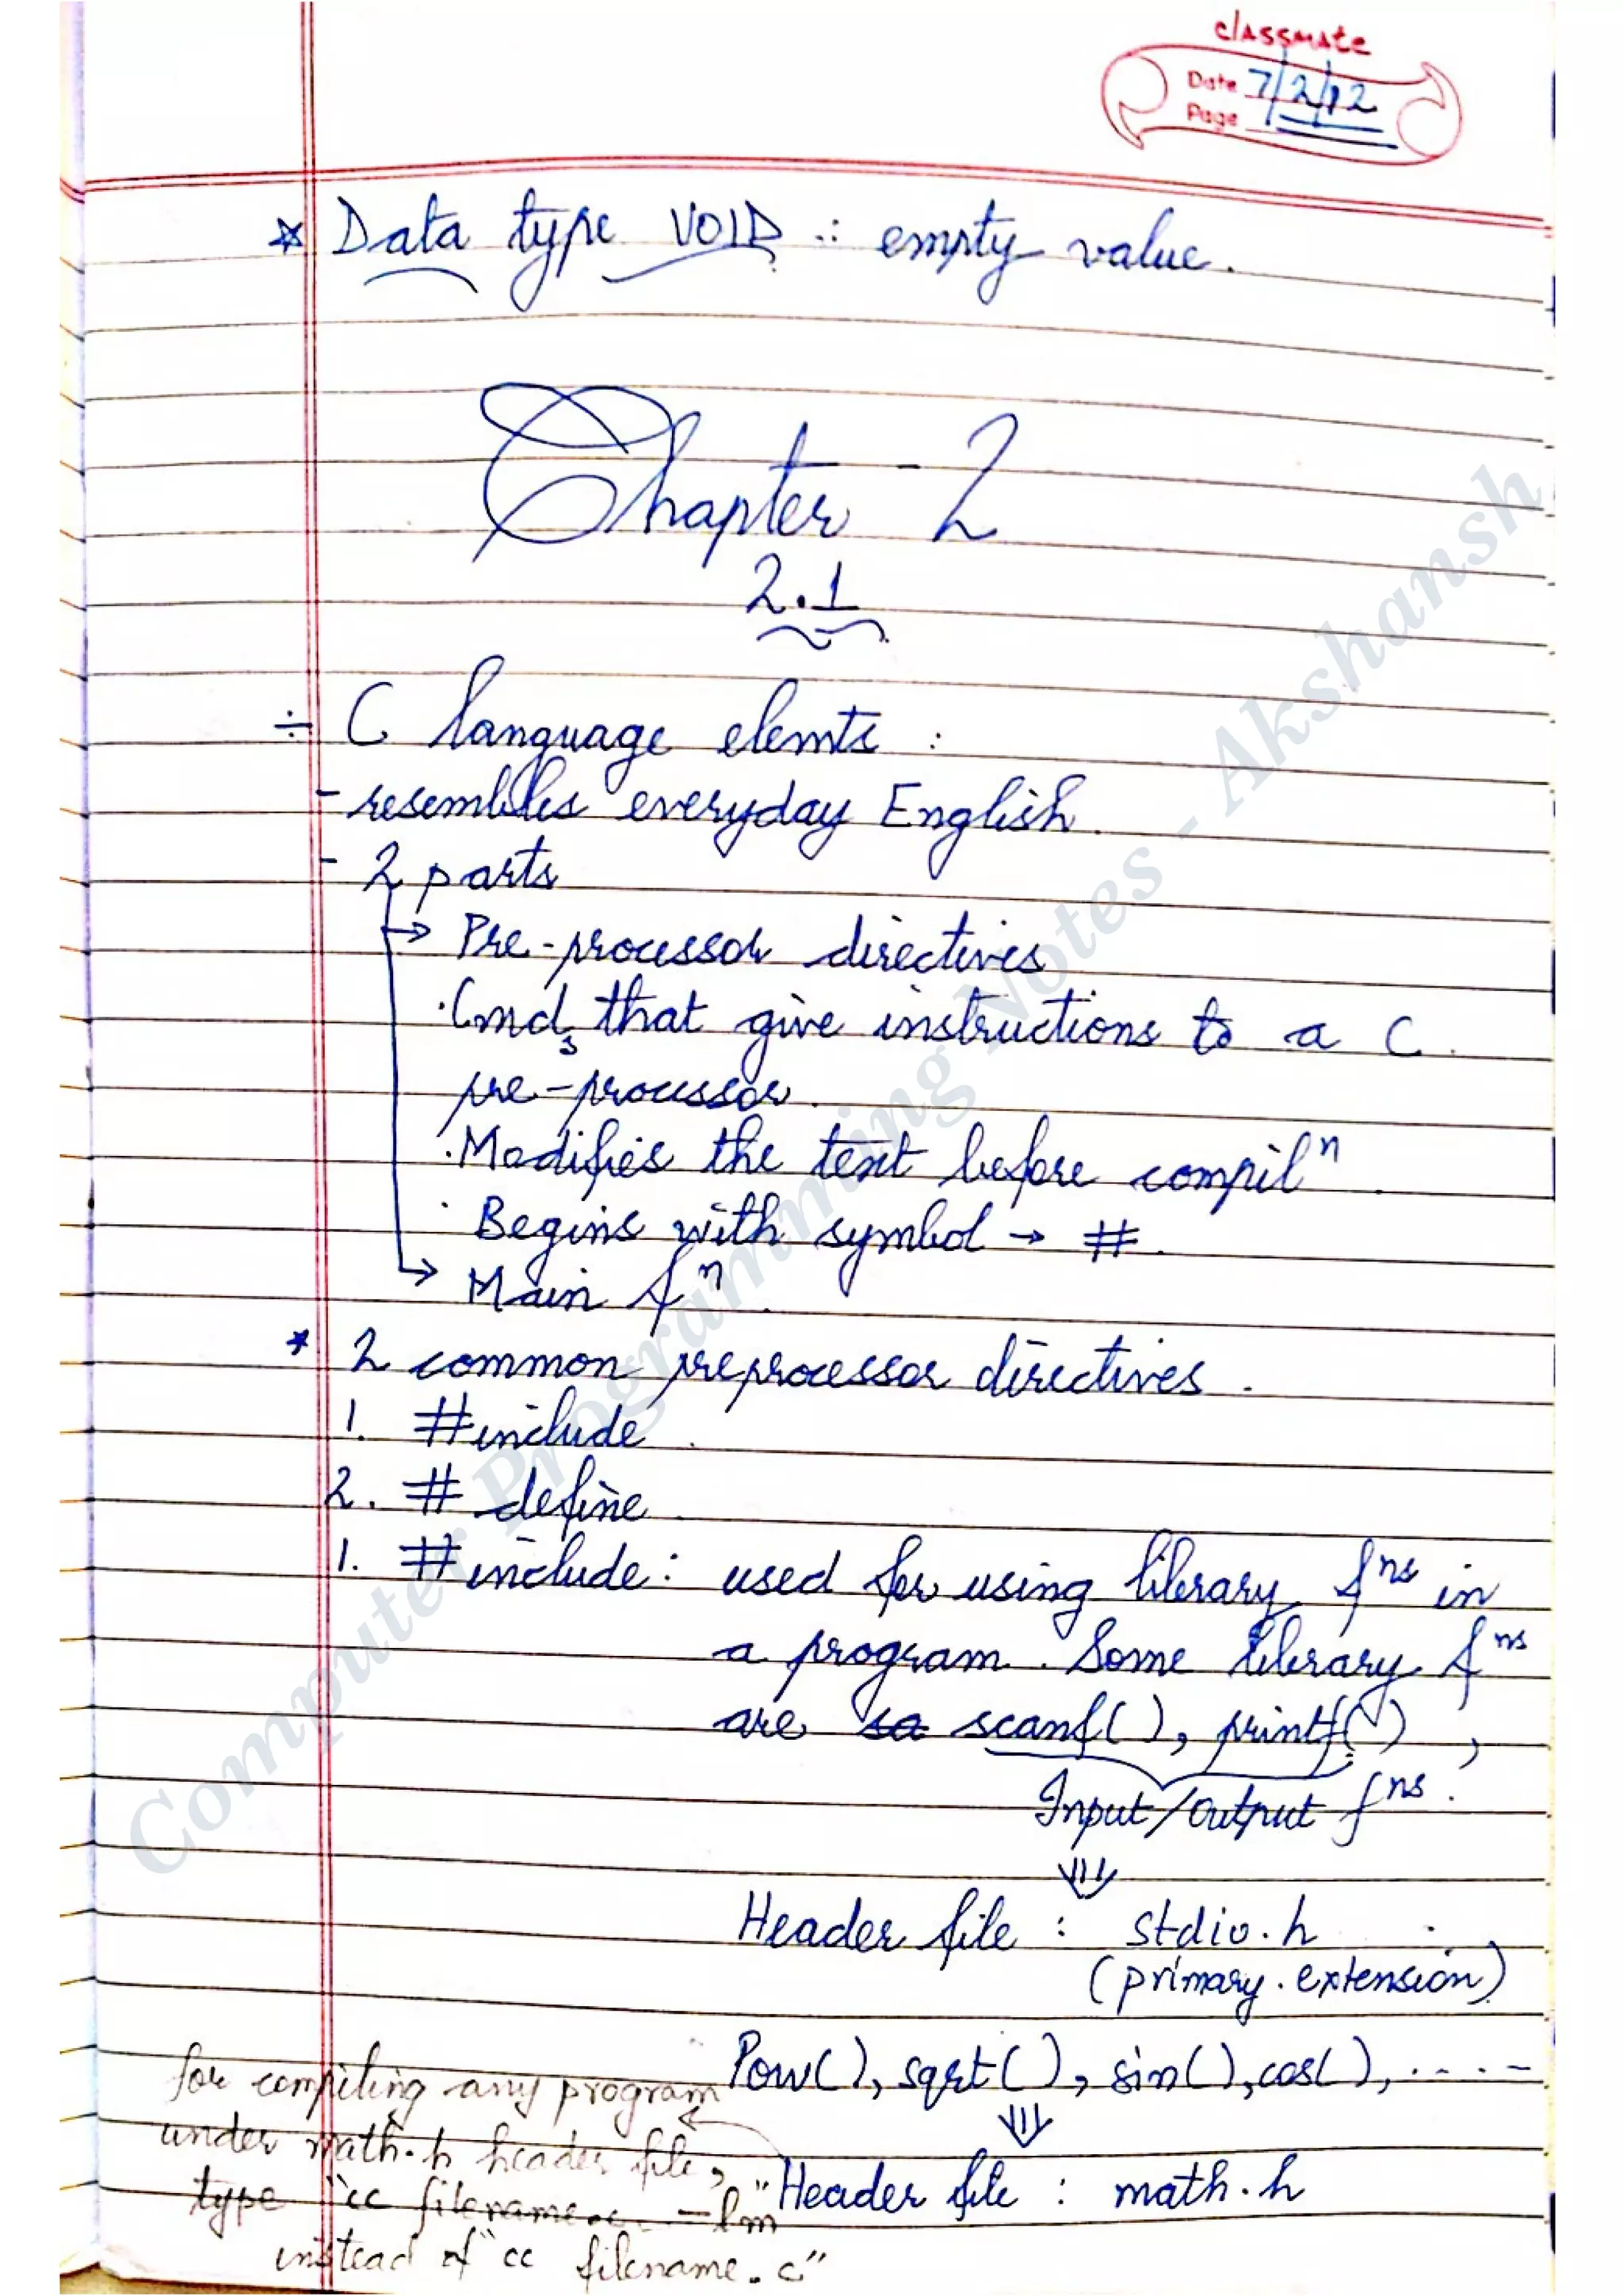 classmate
Date 7/2/12
Page
* Data type VOID : empty value.
Chapter - 2
2.1
÷ C language elemts :
- resembles everyday English.
- 2 parts
→ Pre-processor directives
· Cmds that give instructions to a C
pre-processor.
· Modifies the text before compilⁿ.
· Begins with symbol → #.
→ Main fⁿ.
* 2 common preprocessor directives.
1. #include.
2. # define.
1. #include: used for using library fⁿˢ in
a program. Some library fⁿˢ
are sa scanf(), printf(),
Input/output fⁿˢ.
Header file : stdio.h
(primary.extension)
Pow(), sqrt(), sin(), cos(), .....
Header file : math.h
for compiling any program
under math.h header file,
type "cc filename.c -lm"
instead of "cc filename.c"
Computer Programming Notes - Akshansh